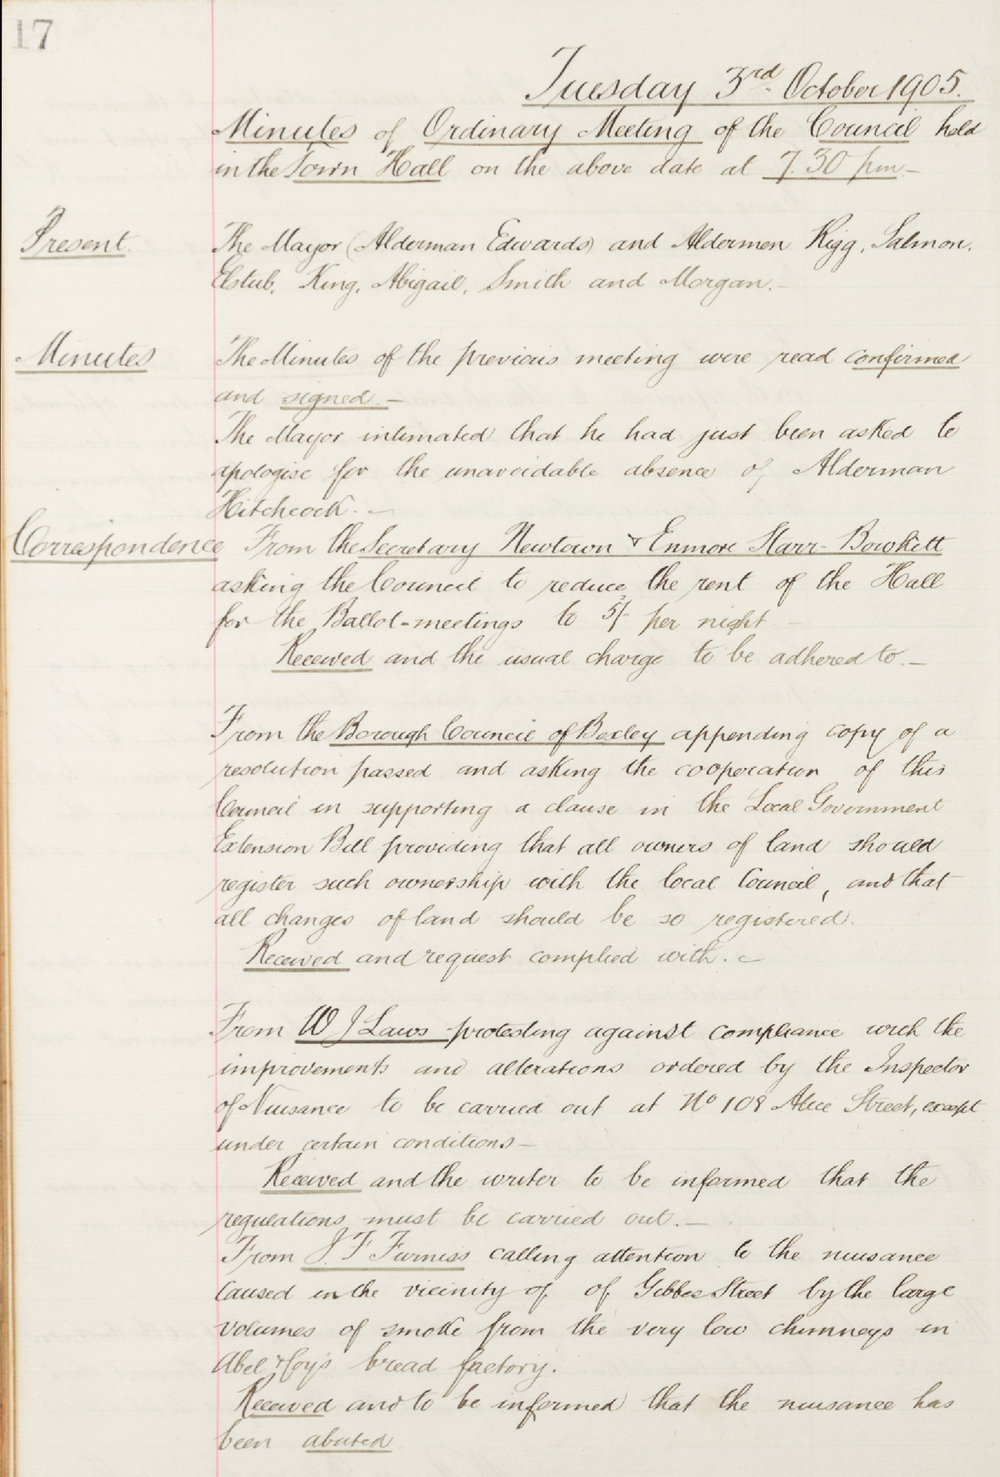 17
Tuesday 3rd October 1905.
Minutes of Ordinary Meeting of the Council held
in the Town Hall on the above date at 7.30 pm –
Present. The Mayor (Alderman Edwards) and Aldermen Rigg, Salmon,
Elstub, King, Abigail, Smith and Morgan. –
Minutes The Minutes of the previous meeting were read confirmed
and signed. –
The Mayor intimated that he had just been asked to
apologise for the unavoidable absence of Alderman
Hitchcock. –
Correspondence From the Secretary Newtown & Enmore Starr-Bowkett
asking the Council to reduce the rent of the Hall
for the Ballot-meetings to 5/- per night –
Received and the usual charge to be adhered to. –
From the Borough Council of Bexley appending copy of a
resolution passed and asking the cooperation of this
Council in supporting a clause in the Local Government
Extension Bill providing that all owners of land should
register such ownership with the local Council, and that
all changes of land should be so registered.
Received and request complied with. –
From W J Laws protesting against compliance with the
improvements and alterations ordered by the Inspector
of Nuisance to be carried out at No 108 Alice Street, except
under certain conditions –
Received and the writer to be informed that the
regulations must be carried out. –
From J. F Furniss calling attention to the nuisance
caused in the vicinity of of Gibbes Street by the large
volumes of smoke from the very low chimneys in
Abel & Coy's bread factory.
Received and to be informed that the nuisance has
been abated